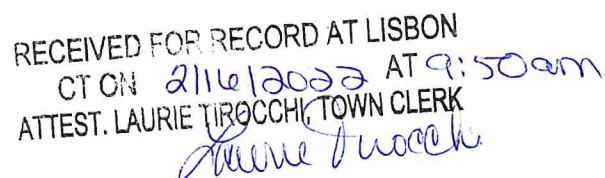 RECEIVED FOR RECORD AT LISBON
CT ON 2/16/2022 AT 9:50am
ATTEST. LAURIE TIROCCHI, TOWN CLERK
Laurie Tirocchi